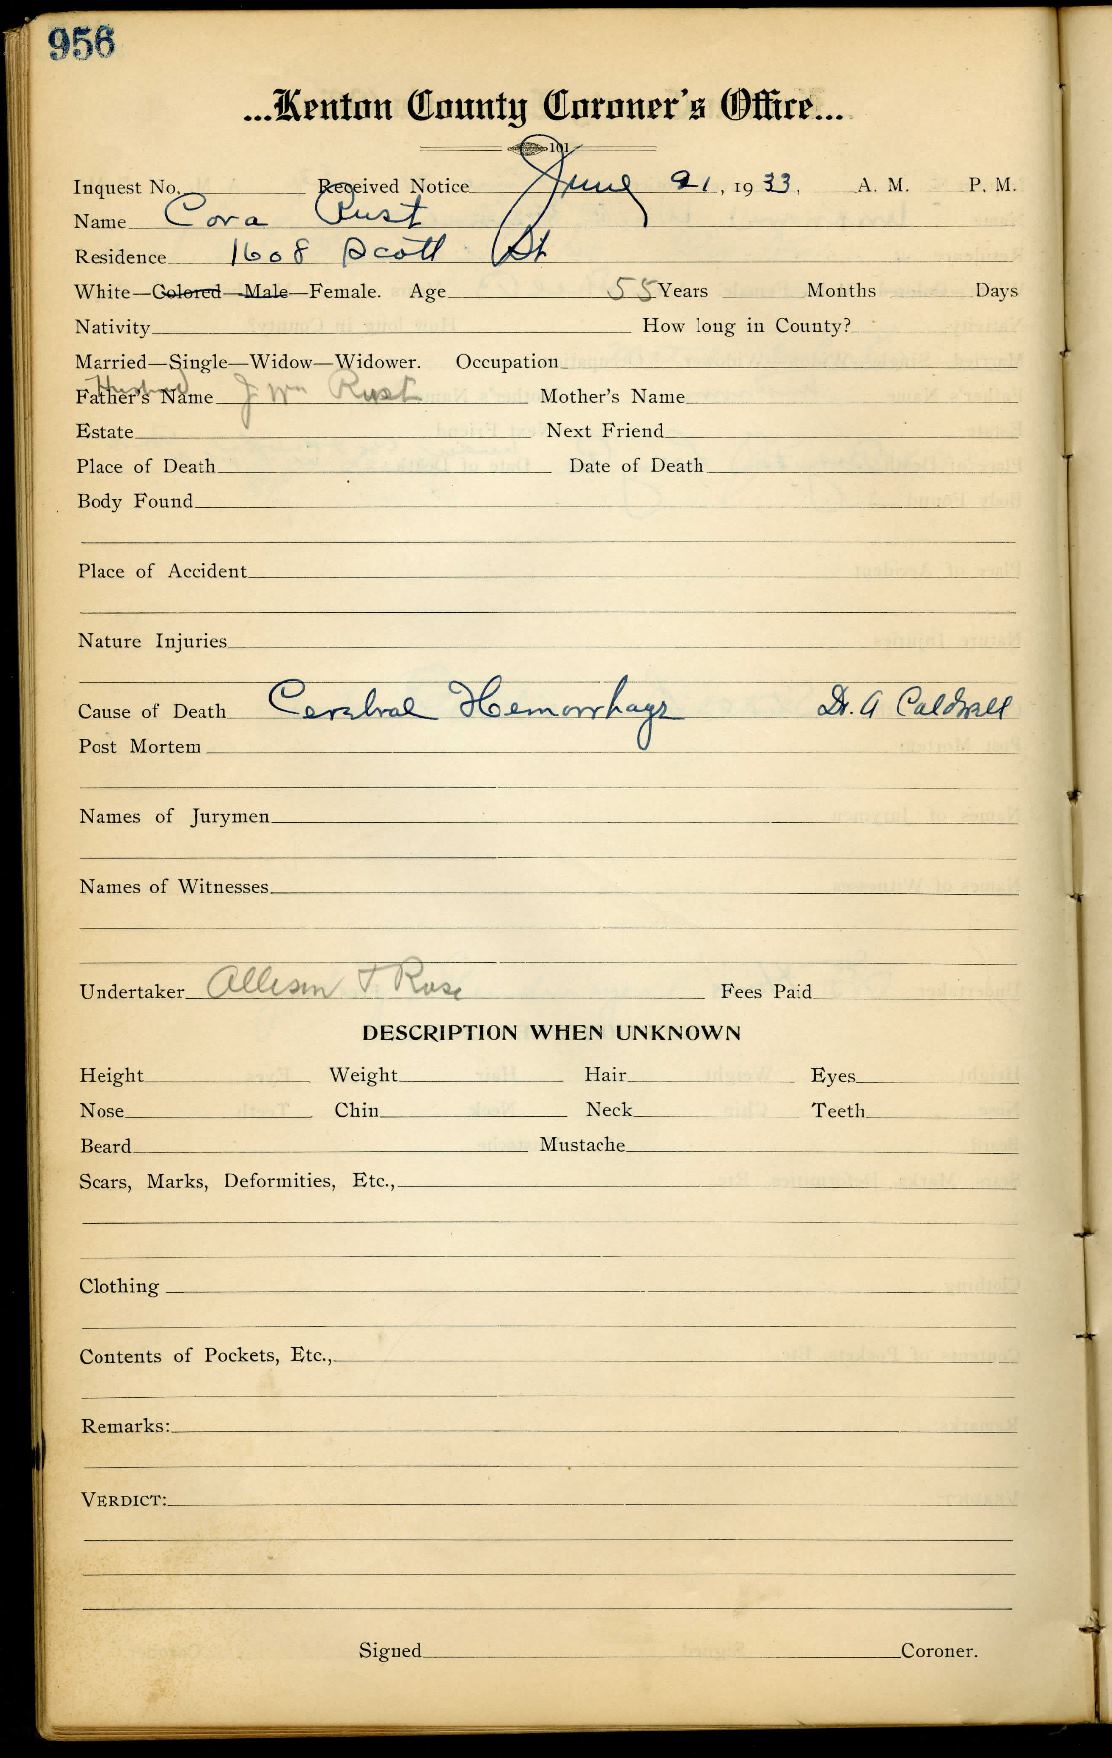 956
...Kenton County Coroner's Office...
101
Inquest No. Received Notice June 21, 1933, A. M. P. M.
Name Cora Rust
Residence 1608 Scott St
White—Colored—Male—Female. Age 55 Years Months Days
Nativity How long in County?
Married—Single—Widow—Widower. Occupation
Husband
Father's Name J Wm Rust Mother's Name
Estate Next Friend
Place of Death Date of Death
Body Found
Place of Accident
Nature Injuries
Cause of Death Cerebral Hemorrhage Dr. A Caldwell
Post Mortem
Names of Jurymen
Names of Witnesses
Undertaker Allison & Rose Fees Paid
DESCRIPTION WHEN UNKNOWN
Height Weight Hair Eyes
Nose Chin Neck Teeth
Beard Mustache
Scars, Marks, Deformities, Etc.,
Clothing
Contents of Pockets, Etc.,
Remarks:
VERDICT:
Signed Coroner.